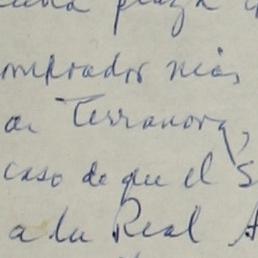 plaza
omprador más
a Terranova,
caso de que el S
a la Real A